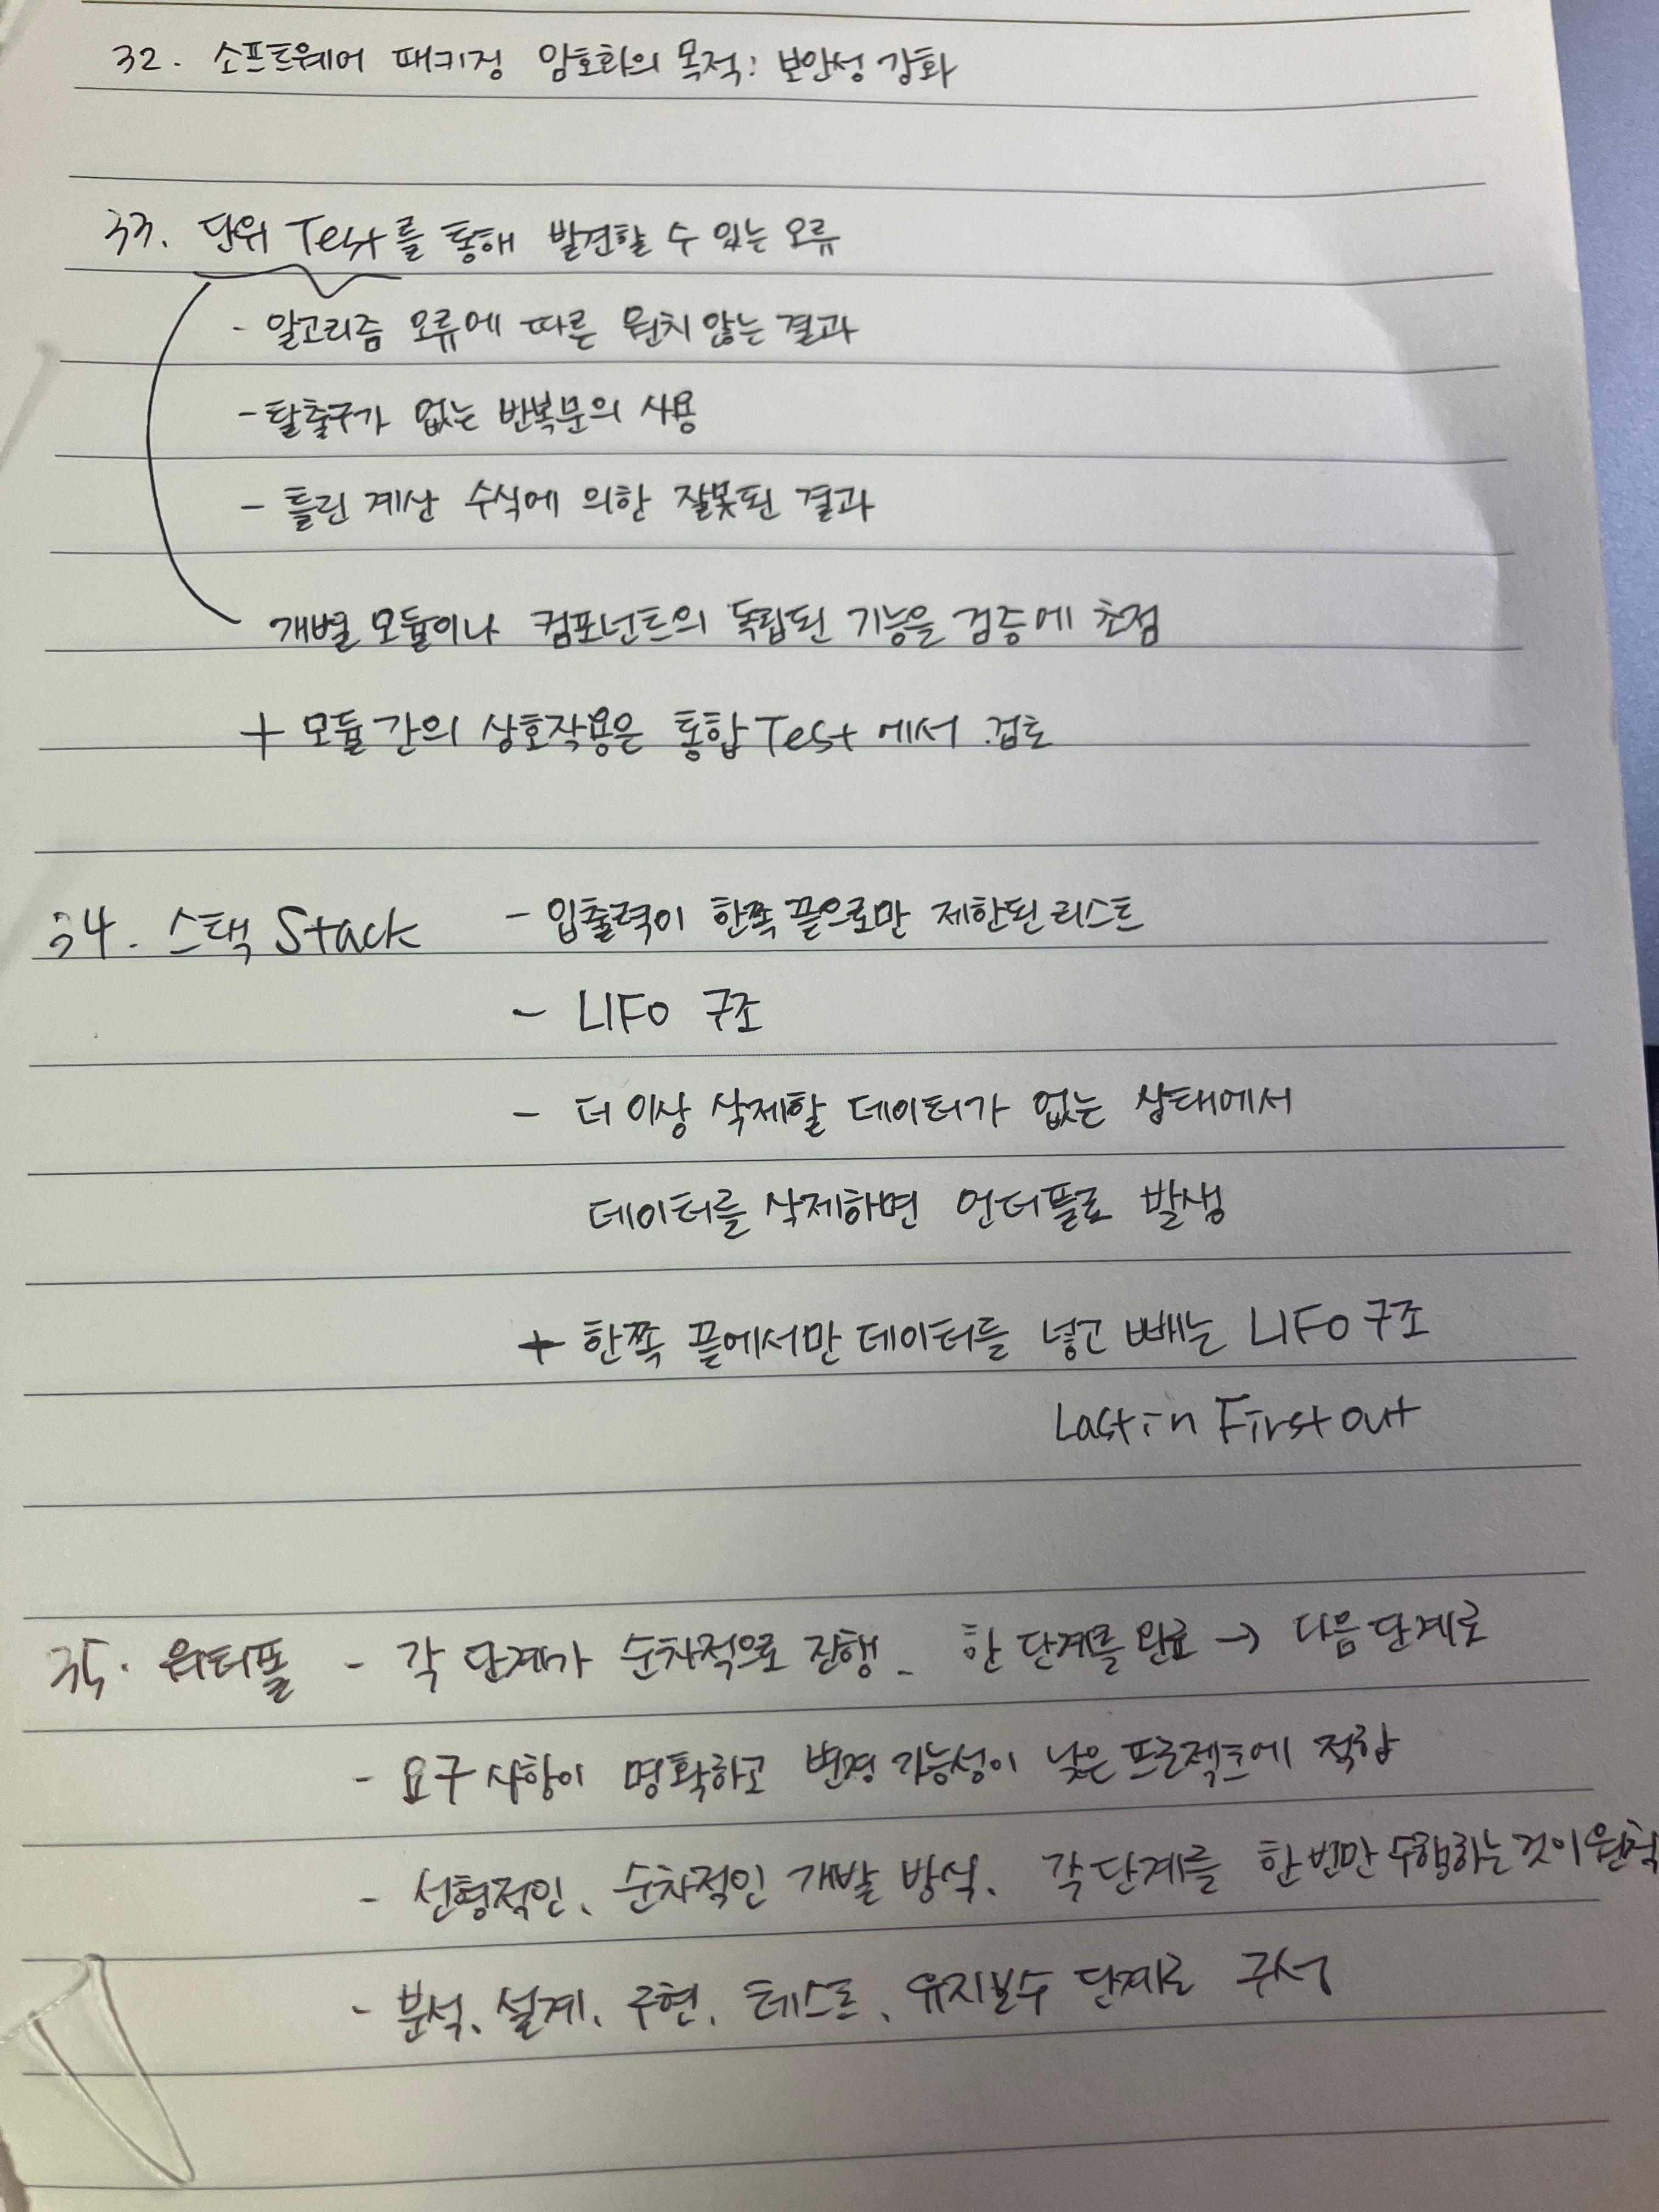 32. 소프트웨어 패키징 암호화의 목적: 보안성 강화
33. 단위 Test를 통해 발견할 수 있는 오류
- 알고리즘 오류에 따른 원치 않는 결과
- 탈출구가 없는 반복문의 사용
- 틀린 계산 수식에 의한 잘못된 결과
개별 모듈이나 컴포넌트의 독립된 기능을 검증에 초점
+ 모듈 간의 상호작용은 통합 Test 에서 검토
34. 스택 Stack - 입출력이 한쪽 끝으로만 제한된 리스트
- LIFO 구조
- 더 이상 삭제할 데이터가 없는 상태에서
데이터를 삭제하면 언더플로 발생
+ 한쪽 끝에서만 데이터를 넣고 빼는 LIFO 구조
Last in First out
35. 워터폴 - 각 단계가 순차적으로 진행. 한 단계를 완료 → 다음 단계로
- 요구 사항이 명확하고 변경 가능성이 낮은 프로젝트에 적합
- 선형적인, 순차적인 개발 방식. 각 단계를 한 번만 수행하는 것이 원칙
- 분석, 설계, 구현, 테스트, 유지보수 단계로 구성